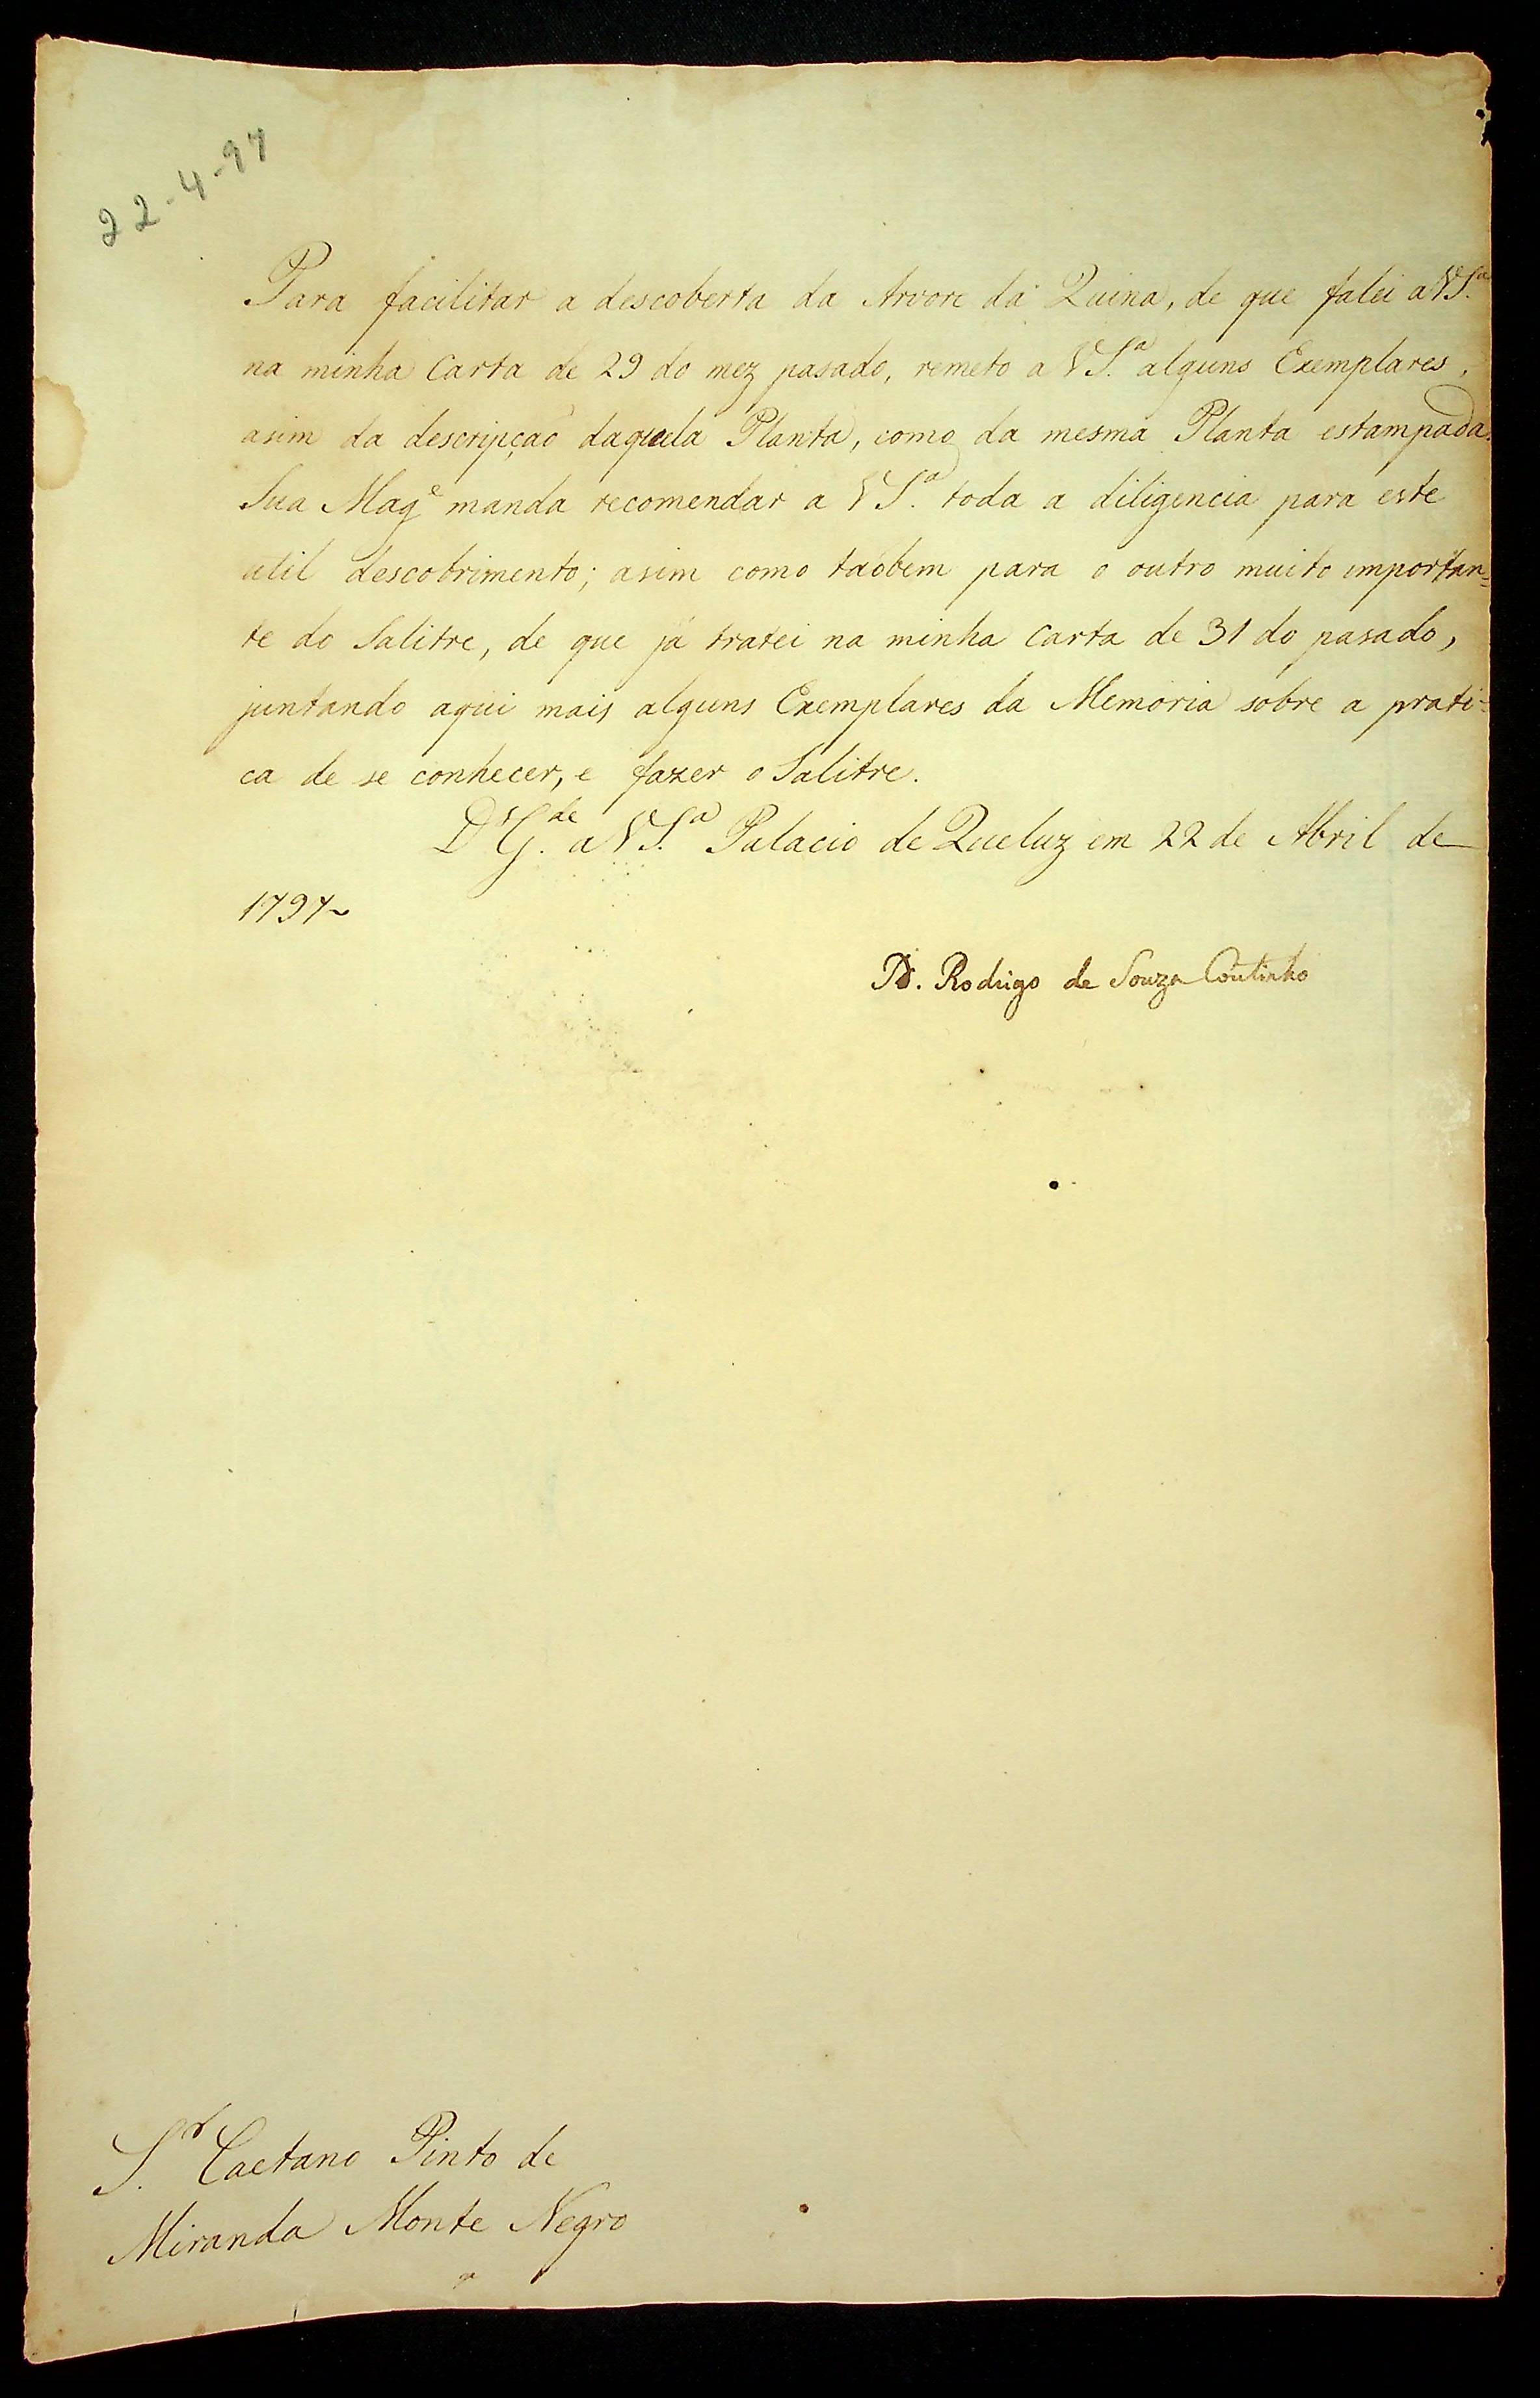 22-4-97
Para facilitar a descoberta da Arvore da Quina, de que falei a VS.ª
na minha Carta de 29 do mez pasado, remeto a VS.ª alguns Exemplares,
asim da descripçaõ daquela Planta, como da mesma Planta estampada.
Sua Mag.e manda recomendar a VS.ª toda a diligencia para este
util descobrimento; asim como taõbem para o outro muito importan=
te do Salitre, de que já tratei na minha Carta de 31 do pasado,
juntando aqui mais alguns Exemplares da Memoria sobre a prati=
ca de se conhecer, e fazer o Salitre.
D.s G.de a VS.ª Palacio de Queluz em 22 de Abril de
1797~
D. Rodrigo de Souza Coutinho
S.r Caetano Pinto de
Miranda Monte Negro